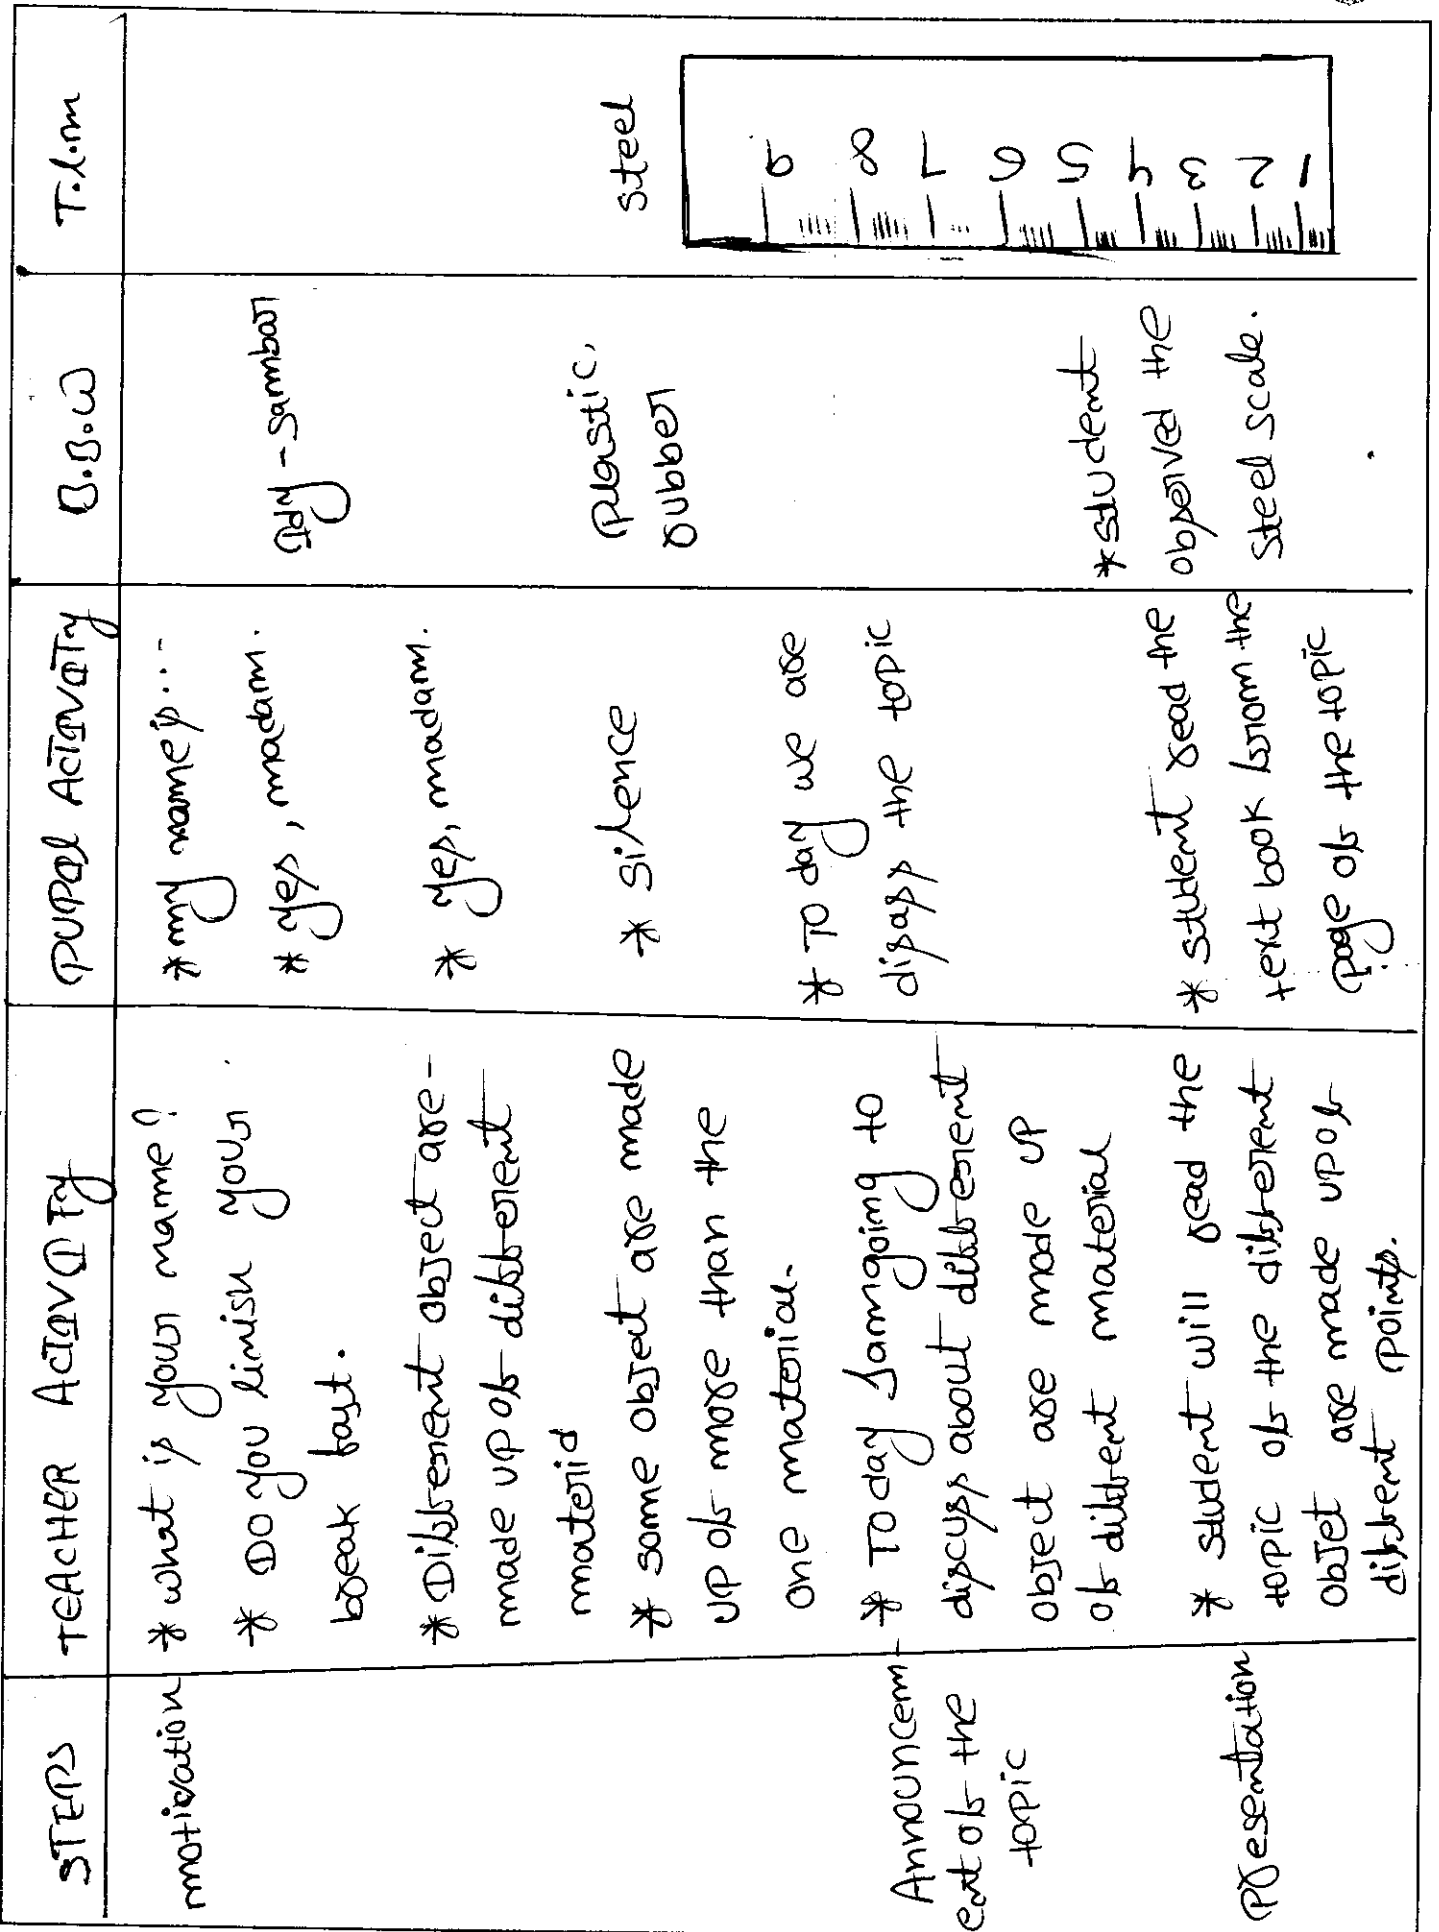 STEPS
TEACHER ACTIVITY
PUPAL ACTIVITY
B.B.W
T.l.m
motivation
* what is your name?
* Do you finish your
break fast.
* Different object are-
made up of different
materid
* some object are made
up of more than the
one material.
* my name is...
* yes, madam.
* yes, madam.
* silence
Idly - Sambar
Plastic,
rubber
steel
9 8 7 6 5 4 3 2 1
Announcem-
ent of the
topic
* To day I am going to
discuss about different
object are made up
of diffrent material
* To day we are
disass the topic
Presentation
* student will read the
topic of the different
objet are made up of
diffrent points.
* student read the
text book from the
page of the topic
* student
observed the
Steel scale.